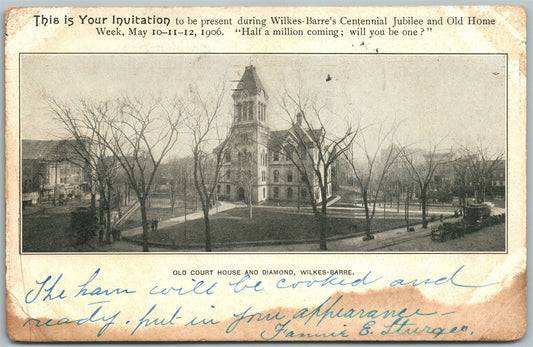 This is Your Invitation to be present during Wilkes-Barre's Centennial Jubilee and Old Home
Week, May 10-11-12, 1906. "Half a million coming; will you be one?"
OLD COURT HOUSE AND DIAMOND, WILKES-BARRE.
The ham will be cooked and
ready, put in your appearance -
Fannie E. Sturges